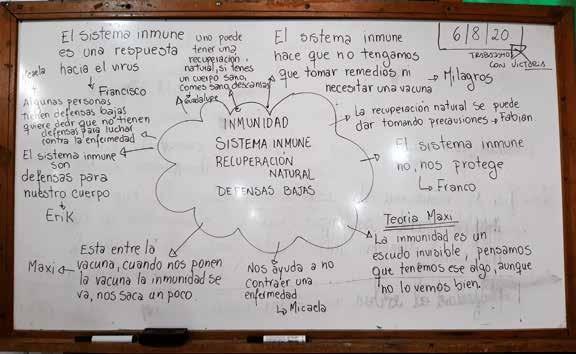 El sistema inmune
es una respuesta
hacia el virus
Francisco
uno puede
tener una
recuperación
natural, si tenes
un cuerpo sano,
comes sano, descansas
Guadalupe
El sistema inmune
hace que no tengamos
que tomar remedios ni
necesitar una vacuna
Milagros
6/8/20
TRABAJAMOS
CON VICTORIA
Algunas personas
tienen defensas bajas
quiere decir que no tienen
defensas para luchar
contra la enfermedad
El sistema inmune
son
defensas para
nuestro cuerpo
Erik
INMUNIDAD
SISTEMA INMUNE
RECUPERACIÓN
NATURAL
DEFENSAS BAJAS
La recuperación natural se puede
dar tomando precauciones → Fabián
El sistema inmune
no, nos protege
Franco
Teoria Maxi
La inmunidad es un
escudo invisible, pensamos
que tenemos ese algo, aunque
no lo vemos bien.
Nos ayuda a no
contraer una
enfermedad
Micaela
Esta entre la
vacuna, cuando nos ponen
la vacuna la inmunidad se
va, nos saca un poco
Maxi